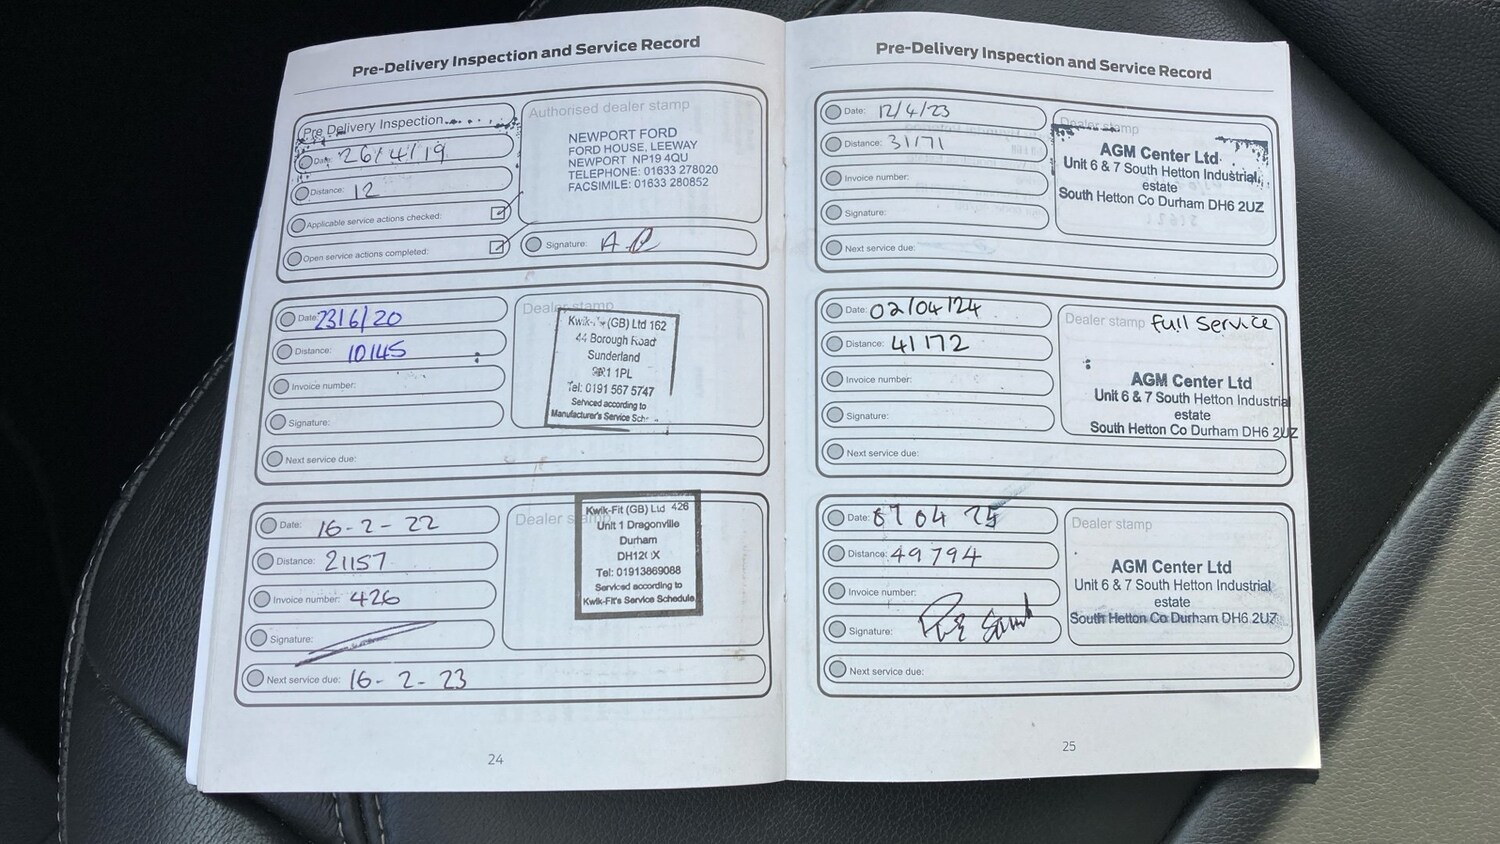 Pre-Delivery Inspection and Service Record
Pre Delivery Inspection
Date: 26/4/19
Distance: 12
Applicable service actions checked:
Open service actions completed:
Authorised dealer stamp
NEWPORT FORD
FORD HOUSE, LEEWAY
NEWPORT NP19 4QU
TELEPHONE: 01633 278020
FACSIMILE: 01633 280852
Signature:
Date: 23/6/20
Distance: 10145
Invoice number:
Signature:
Next service due:
Dealer stamp
(GB) Ltd 162
44 Borough Road
Sunderland
1PL
Tel: 0191 567 5747
Serviced according to
Manufacturer's Service
Date: 16-2-22
Distance: 21157
Invoice number: 426
Signature:
Next service due: 16-2-23
Dealer stamp
Kwik-Fit (GB) Ltd 426
Unit 1 Dragonville
Durham
Tel: 01913869068
Serviced according to
Kwik-Fit's Service Schedule
24
Pre-Delivery Inspection and Service Record
Date: 12/4/23
Distance: 31171
Invoice number:
Signature:
Next service due:
Dealer stamp
AGM Center Ltd
Unit 6 & 7 South Hetton Industrial
estate
South Hetton Co Durham DH6 2UZ
Date: 02/04/24
Distance: 41172
Invoice number:
Signature:
Next service due:
Dealer stamp Full Service
AGM Center Ltd
Unit 6 & 7 South Hetton Industrial
estate
South Hetton Co Durham DH6 2UZ
Date: 04 25
Distance: 49794
Invoice number:
Signature:
Next service due:
Dealer stamp
AGM Center Ltd
Unit 6 & 7 South Hetton Industrial
estate
South Hetton Co Durham DH6 2UZ
25